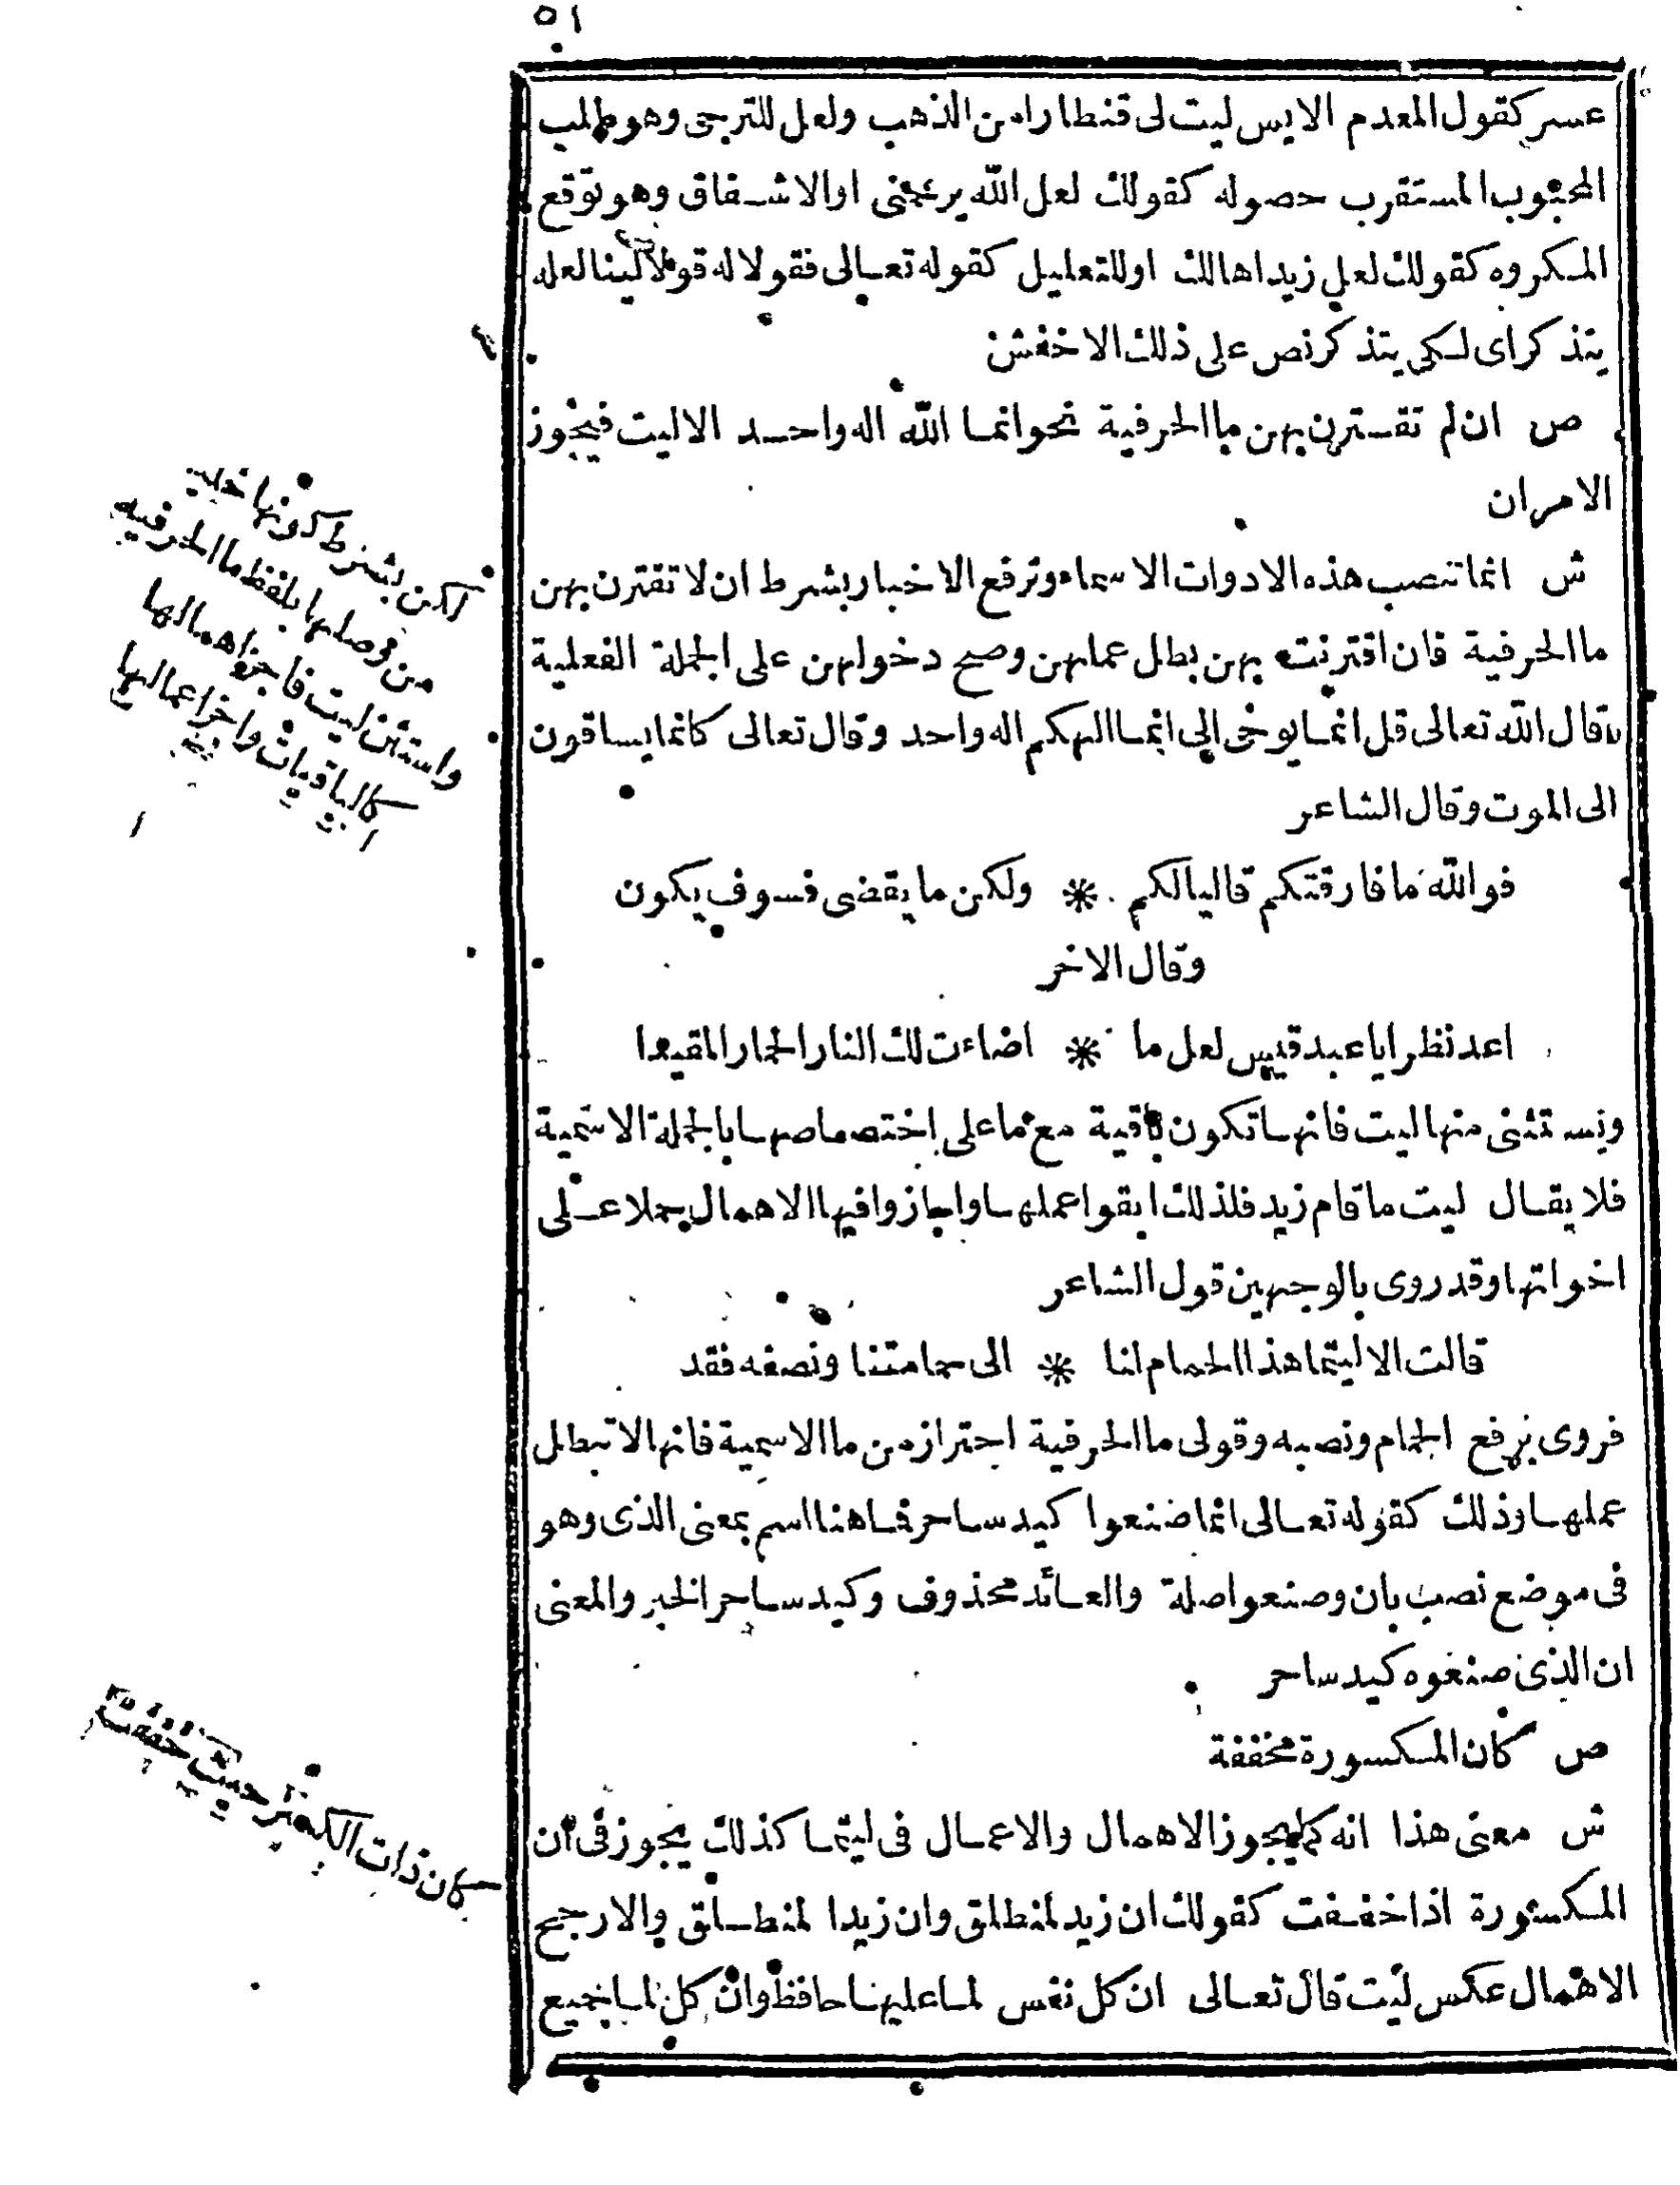 ٥١
عسر كقول المعدم الايس ليت لى قنطارا من الذهب ولعل للترجى وهو طلب
المحبوب المستقرب حصوله كقولك لعل الله يرحمنى او الاشفاق وهو توقع
المكروه كقولك لعل زيدا هالك او للتعليل كقوله تعالى فقولا له قولا لينا لعله
يتذكر اى لكى يتذكر نص على ذلك الاخفش
ص ان لم تقترن بهن ما الحرفية نحو انما الله اله واحد الا ليت فيجوز
الامران
ش انما تنصب هذه الادوات الاسماء وترفع الاخبار بشرط ان لا تقترن بهن
ما الحرفية فان اقترنت بهن بطل عملهن وصح دخولهن على الجملة الفعلية
قال الله تعالى قل انما يوحى الى انما الهكم اله واحد وقال تعالى كانما يساقون
الى الموت وقال الشاعر
فوالله ما فارقتكم قاليا لكم * ولكن ما يقضى فسوف يكون
وقال الاخر
اعد نظرا يا عبد قيس لعل ما * اضاءت لك النار الحمار المقيدا
ويستثنى منها ليت فانها تكون باقية مع ما على اختصاصها بالجملة الاسمية
فلا يقال ليت ما قام زيد فلذلك ابقوا عملها واجازوا فيها الاهمال حملا على
اخواتها وقد روى بالوجهين قول الشاعر
قالت الا ليتما هذا الحمام لنا * الى حمامتنا ونصفه فقد
فروى برفع الحمام ونصبه وقولى ما الحرفية احتراز من ما الاسمية فانها لا تبطل
عملها وذلك كقوله تعالى انما صنعوا كيد ساحر فما هنا اسم بمعنى الذى وهو
فى موضع نصب بان وصنعوا صلة والعائد محذوف وكيد ساحر الخبر والمعنى
ان الذى صنعوه كيد ساحر
ص كان المكسورة مخففة
ش معنى هذا انه كما يجوز الاهمال والاعمال فى ليتما كذلك يجوز فى ان
المكسورة اذا خففت كقولك ان زيد لمنطلق وان زيدا لمنطلق والارجح
الاهمال عكس ليت قال تعالى ان كل نفس لما عليها حافظ وان كل لما جميع
لكن بشرط كونها
من وصلها بلفظ ما الحرفيه
واستثن ليت فاجز اهمالها
كالباقيات واخر اعمالها
كان ذات الكسر حيث خففت